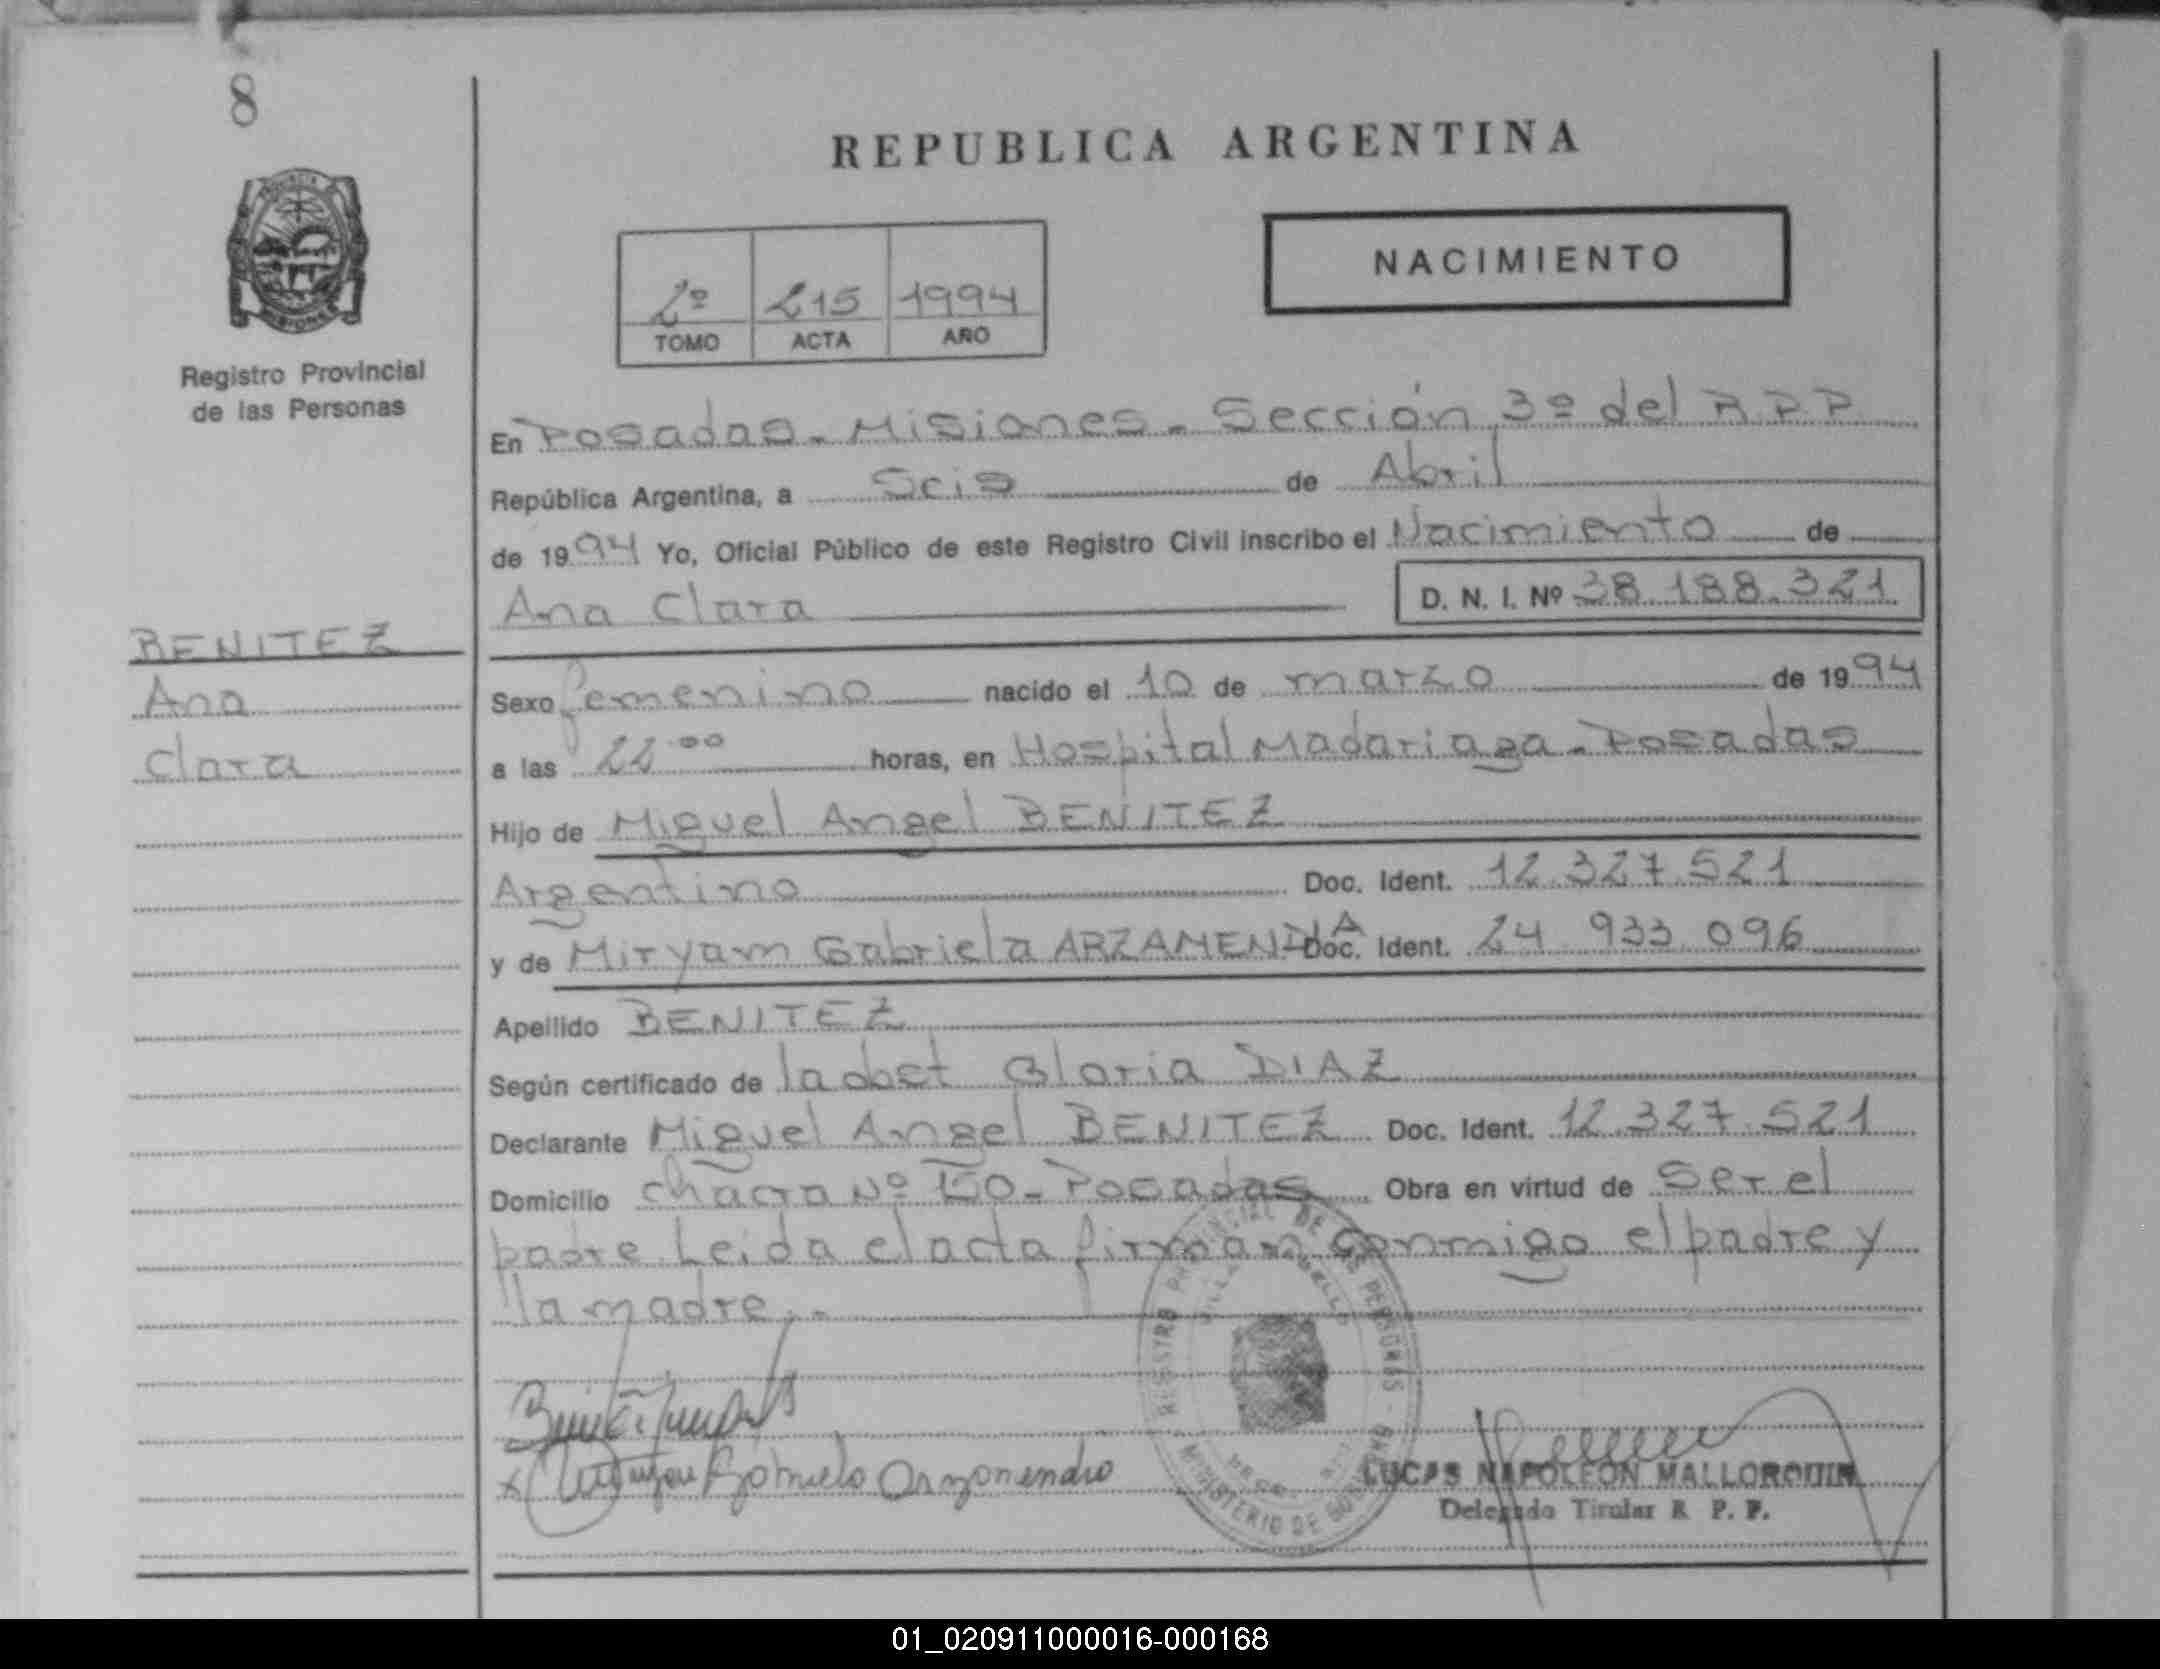 8
REPUBLICA ARGENTINA
NACIMIENTO
2º 215 1994
TOMO ACTA AÑO
Registro Provincial
de las Personas
En Posadas - Misiones - Sección 3º del R.P.P.
República Argentina, a Seis de Abril
de 1994 Yo, Oficial Público de este Registro Civil inscribo el Nacimiento de
Ana Clara D. N. I. Nº 38.188.321
BENITEZ
Ana
Clara
Sexo femenino nacido el 10 de marzo de 1994
a las 22 ºº horas, en Hospital Madariaga - Posadas
Hijo de Miguel Angel BENITEZ
Argentino Doc. Ident. 12.327.521
y de Miryam Gabriela ARZAMENDIA Doc. Ident. 24 933 096
Apellido BENITEZ
Según certificado de la obst Gloria DIAZ
Declarante Miguel Angel BENITEZ Doc. Ident. 12.327.521
Domicilio Chacra Nº 150 - Posadas Obra en virtud de Ser el
padre Leida el acta firman conmigo el padre y
la madre.-
REGISTRO PROVINCIAL DE LAS PERSONAS
MINISTERIO DE
Gabriela Arzamendia
LUCAS NAPOLEON MALLORQUIN
Delegado Titular R. P. P.
01_020911000016-000168